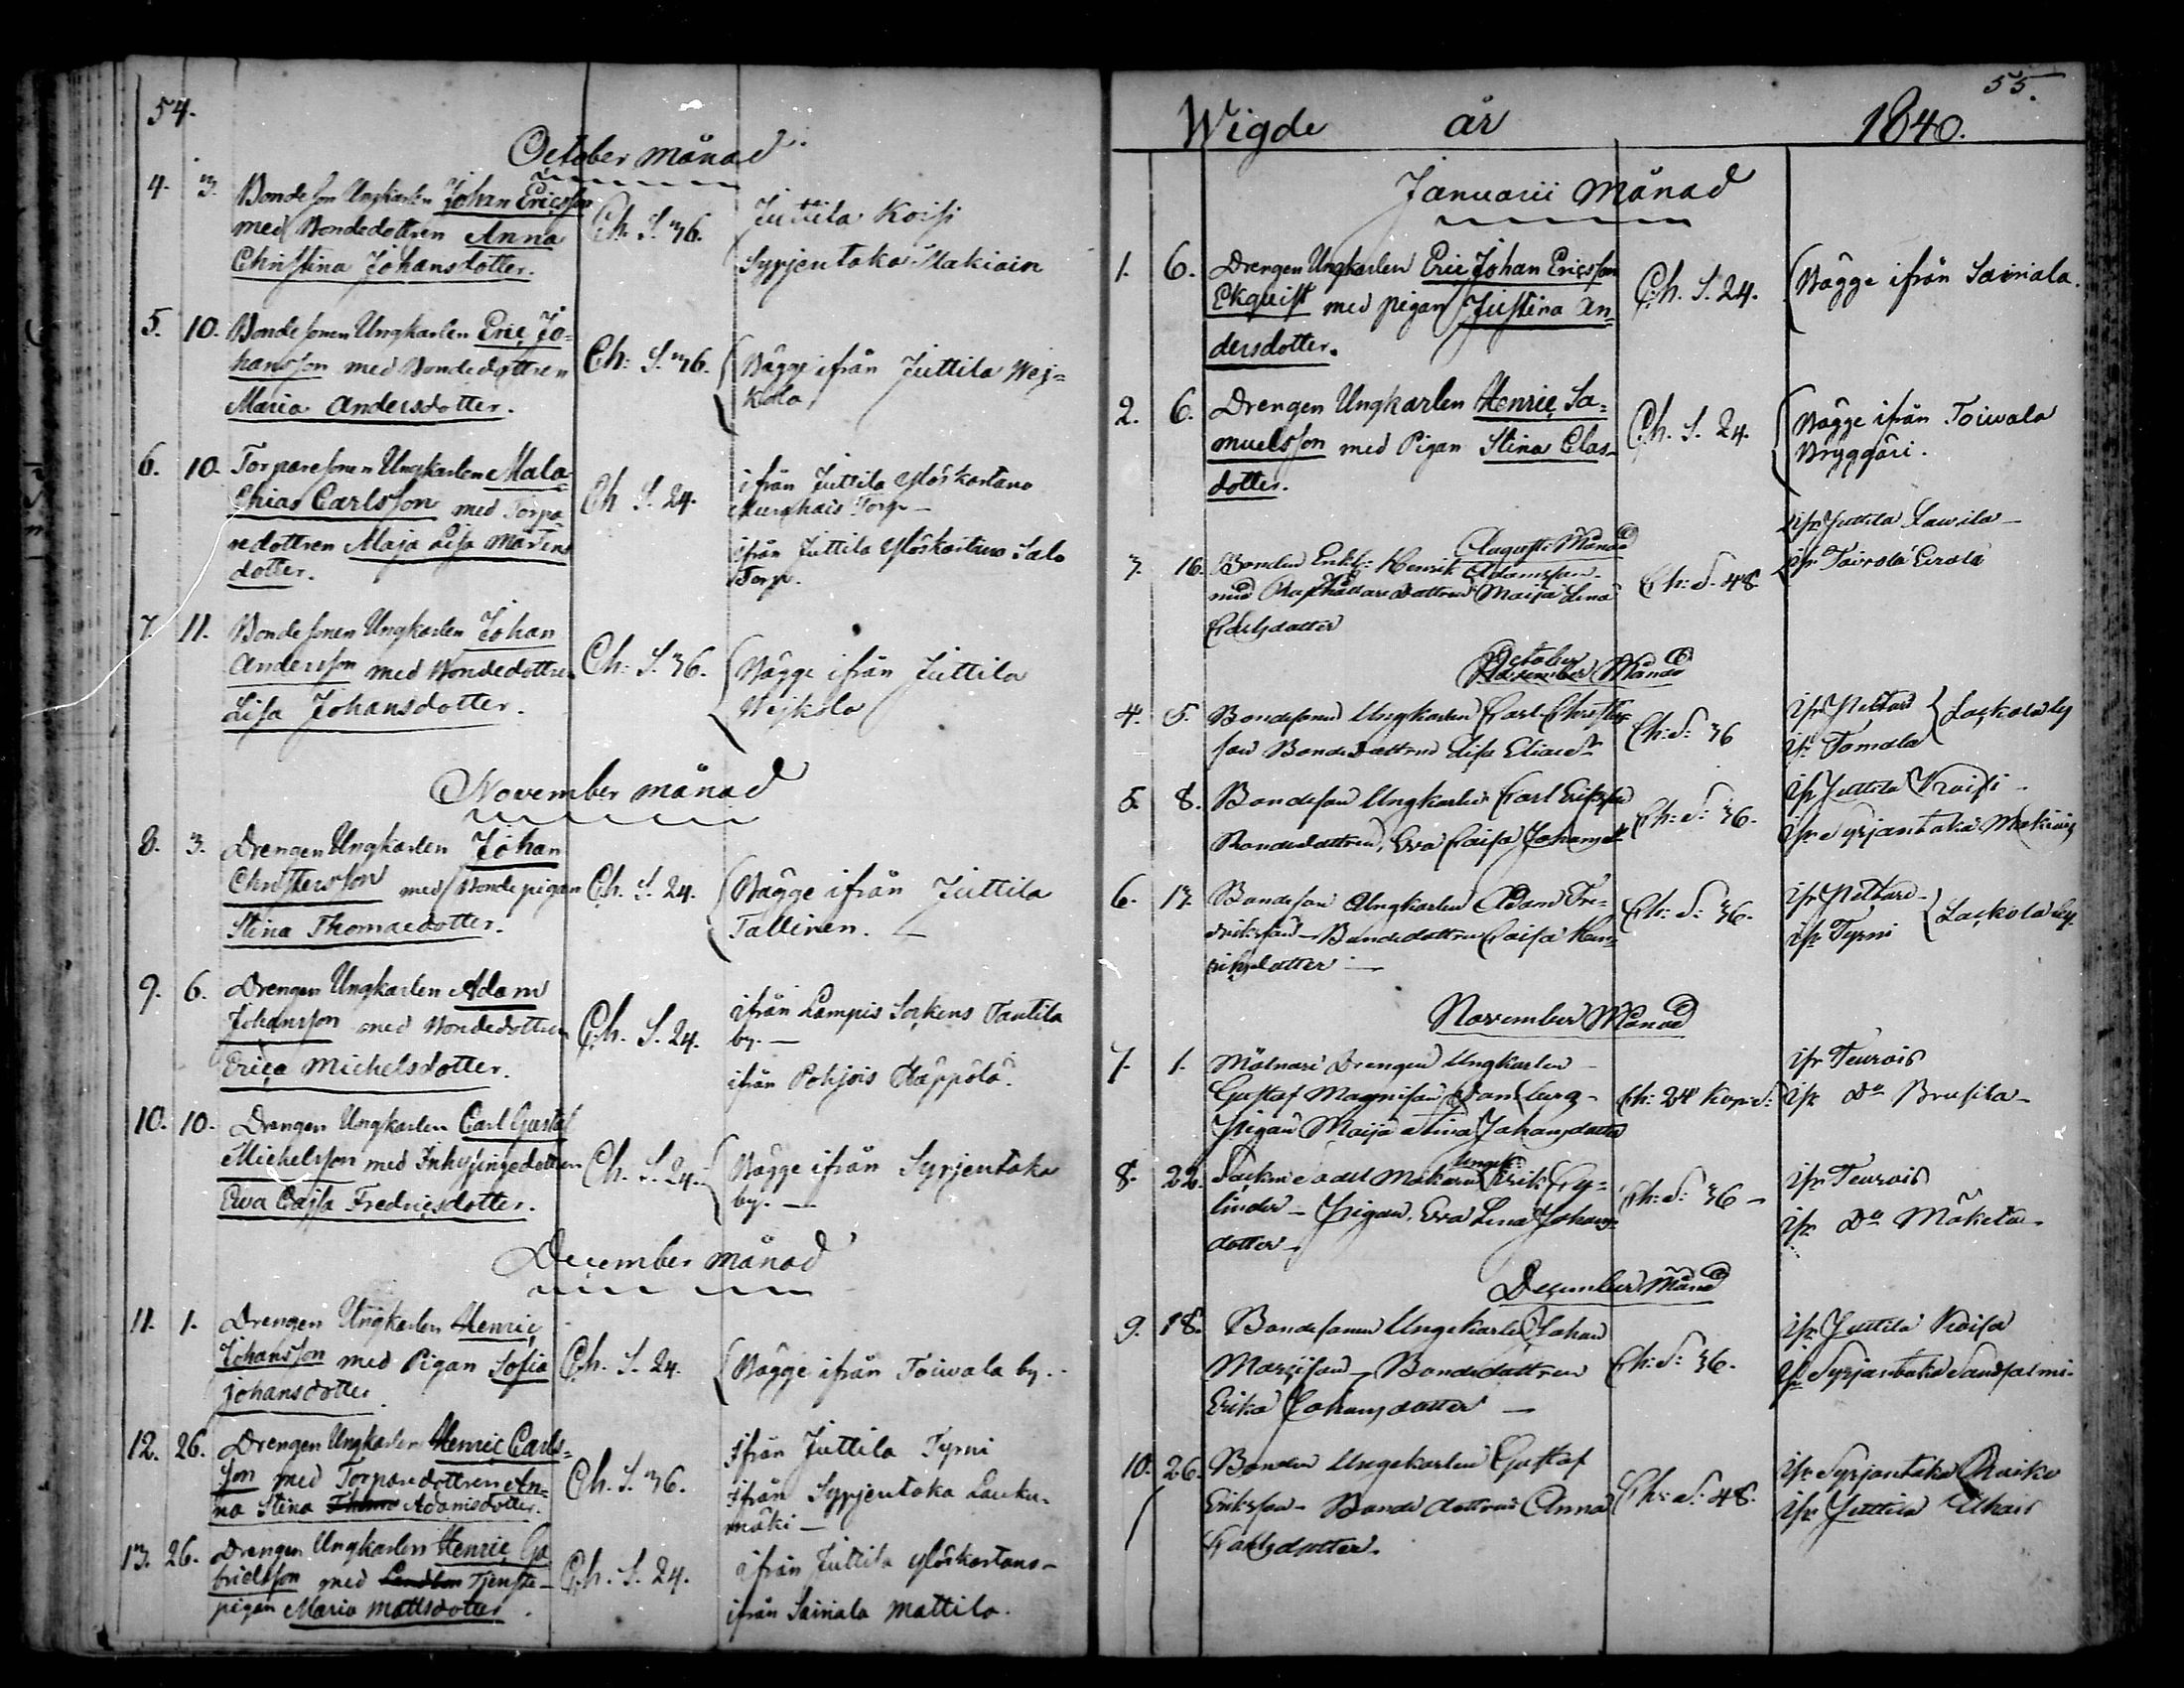 54.
October månad
4. 3. Bonde son Ungkarlen Johan Ericsson
med Bondedottren Anna
Christina Johansdotter.
Ch. S. 36.
Juttila Koisi
Syrjentaka Makiain
5. 10. Bonde sonen Ungkarlen Eric Jo=
hansson med Bondedottren
Maria Andersdotter.
Ch: S. 36.
Bägge ifrån Juttila Wej=
kola
6. 10. Torparesonen Ungkarlen Mala=
Chias Carlsson med Torpa=
redottren Maja Lisa Mårtens
dotter.
Ch S. 24.
ifrån Juttila Ylöskartano
Torp -
ifrån Juttila Ylöskartano Salo
Torp.
7. 11. Bonde sonen Ungkarlen Johan
Andersson med Bondedottren
Lisa Johansdotter.
Ch: S. 36.
Bägge ifrån Juttila
Wejkola
November månad
8. 3. Drengen Ungkarlen Johan
Christersson med Bondepigan
Stina Thomaedotter.
Ch. S. 24.
Bägge ifrån Juttila
Tallinen.
9. 6. Drengen Ungkarlen Adam
Johansson med Bondedottren
Erica Michelsdotter.
Ch. S. 24.
ifrån Lampis Sokens Tantila
by. -
ifrån Pohjois
10. 10. Drengen Ungkarlen Carl Gustaf
Michelsson med Inhysingedottren
Ewa Cajsa Fredricsdotter.
Ch. S. 24.
Bägge ifrån Syrjentaka
by. -
December månad
11. 1. Drengen Ungkarlen Henric
Johansson med Pigan Sofia
johansdotter.
Ch. S. 24.
Bägge ifrån Toiwala by.
12. 26. Drengen Ungkarlen Henric Carls=
son med Torparedottren An=
na Stina Adamsdotter.
Ch. S. 36.
Ifrån Juttila Tyrni
Ifrån Syrjentaka Lauku=
mäki -
13. 26. Drengen Ungkarlen Henric Ga
brielsson med Tjenste-
pigan Maria Mattsdotter.
Ch. S. 24.
ifrån Juttila Ylöskartano -
ifrån Sairiala Mattila.
55.
Wigde år 1840.
Januarii Månad
1. 6. Drengen Ungkarlen Eric Johan Ericsson
Ekquist med pigan Justina An=
dersdotter.
Ch. S. 24.
Bägge ifrån Sairiala.
2. 6. Drengen Ungkarlen Henric Sa=
muelsson med Pigan Stina Clas=
dotter.
Ch. S. 24.
Bägge ifrån Toiwala
Bryggäri.
Augusti Månad
3. 16. Bonden Enkl: Henrik Adamsson
med dottren Maija Lena
Carlsdotter
Ch: S. 48.
ifr Juttila Lawila -
ifr Toivola Erola
October Månad
4. 5. Bondesonen Ungkarlen Carl Christers
son Bondedottren Lisa Eliaed:r
Ch: S: 36
ifr
ifr Tomola
Laskola by
5. 8. Bondeson Ungkarlen Carl Eriksson
Bondedottren, Eva Caisa Johansd:r
Ch: S: 36.
ifr Juttila Koisi -
ifr Syrjäntaka Makiais
6. 17. Bondeson Ungkarlen Adam Fre=
driksson - Bondedottren Caisa Hen=
riksdotter -
Ch: S: 36.
ifr
ifr Tyrni
Laskola by.
November Månad
7. 1. Mölnare Drengen Ungkarlen -
Gustaf Magnisson
Pigan Maija Stina Johansdotter
Ch: 24 Kop S:
ifr Teurois
ifr D:o Brusila -
8. 22. Ungk: Erik Cy=
linder - Pigan, Eva Lena Johans=
dotter -
Ch: S: 36 -
ifr Teurois
ifr D:o Mäkelä -
December Månad
9. 18. Bondesonen Ungekarlen Johan
- Bondedottren
Erika Johansdotter -
Ch: S: 36.
ifr Juttila Koisa
ifr Syrjäntaka
10. 26. Bonden Ungekarlen Gustaf
Eriksson - Bonde dottren Anna
Carlsdotter.
Ch: S: 48.
ifr Syrjäntaka
ifr Juttila